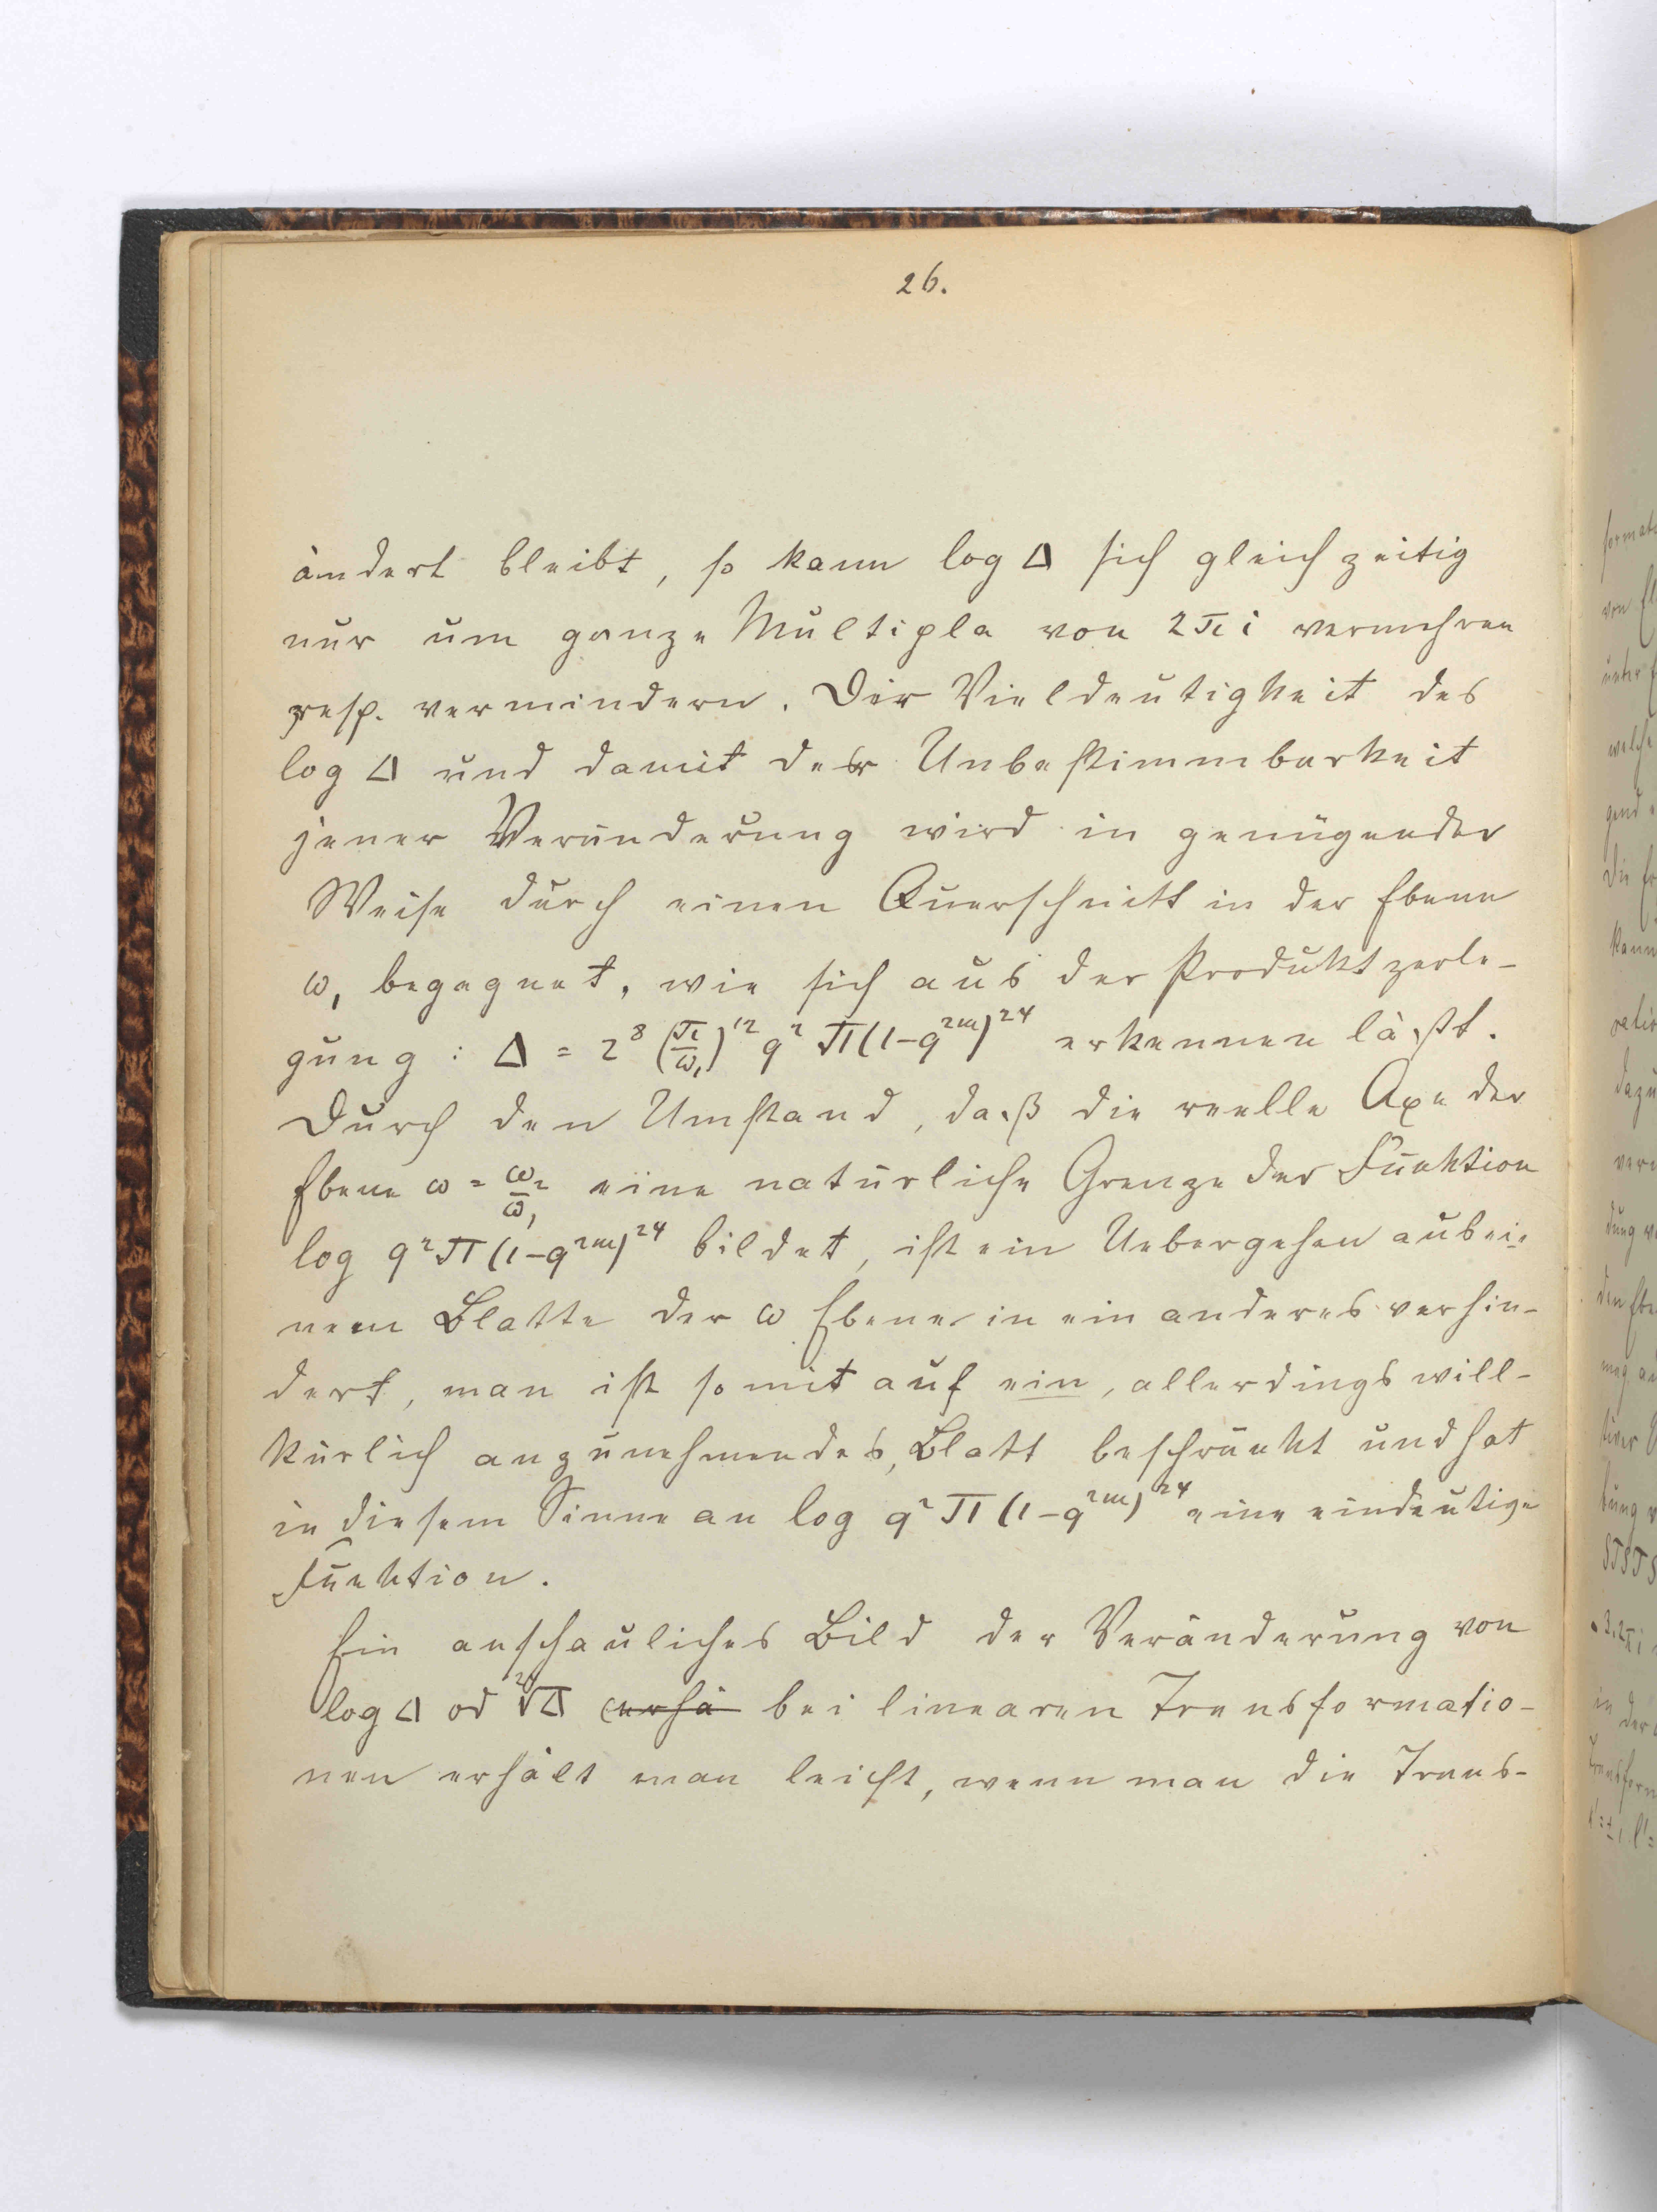 26.
ändert bleibt, so kann log Δ sich gleichzeitig
nur um ganze Multipla von 2πi vermehren
resp. vermindern. Der Vieldeutigkeit des
log Δ und damit der Unbestimmbarkeit
jener Veränderung wird in genügender
Weise durch einen Querschnitt in der Ebene
ω₁ begegnet, wie sich aus der Produktzerle-
gung : Δ = 2⁸ (π/ω₁)¹² q² Π(1-q²ᵐ)²⁴ erkennen läßt.
Durch den Umstand, daß die reelle Axe der
Ebene ω = ω₂/ω₁ eine natürliche Grenze der Funktion
log q² Π (1-q²ᵐ)²⁴ bildet, ist ein Uebergehen aus ei-
nem Blatte der ω Ebene in ein anderes verhin-
dert, man ist somit auf ein, allerdings will-
kürlich anzunehmendes, Blatt beschränkt und hat
in diesem Sinne an log q² Π (1-q²ᵐ)²⁴ eine eindeutige
Funktion.
Ein anschauliches Bild der Veränderung von
log Δ od ²⁴√Δ erhä bei linearen Transformatio-
nen erhält man leicht, wenn man die Trans-